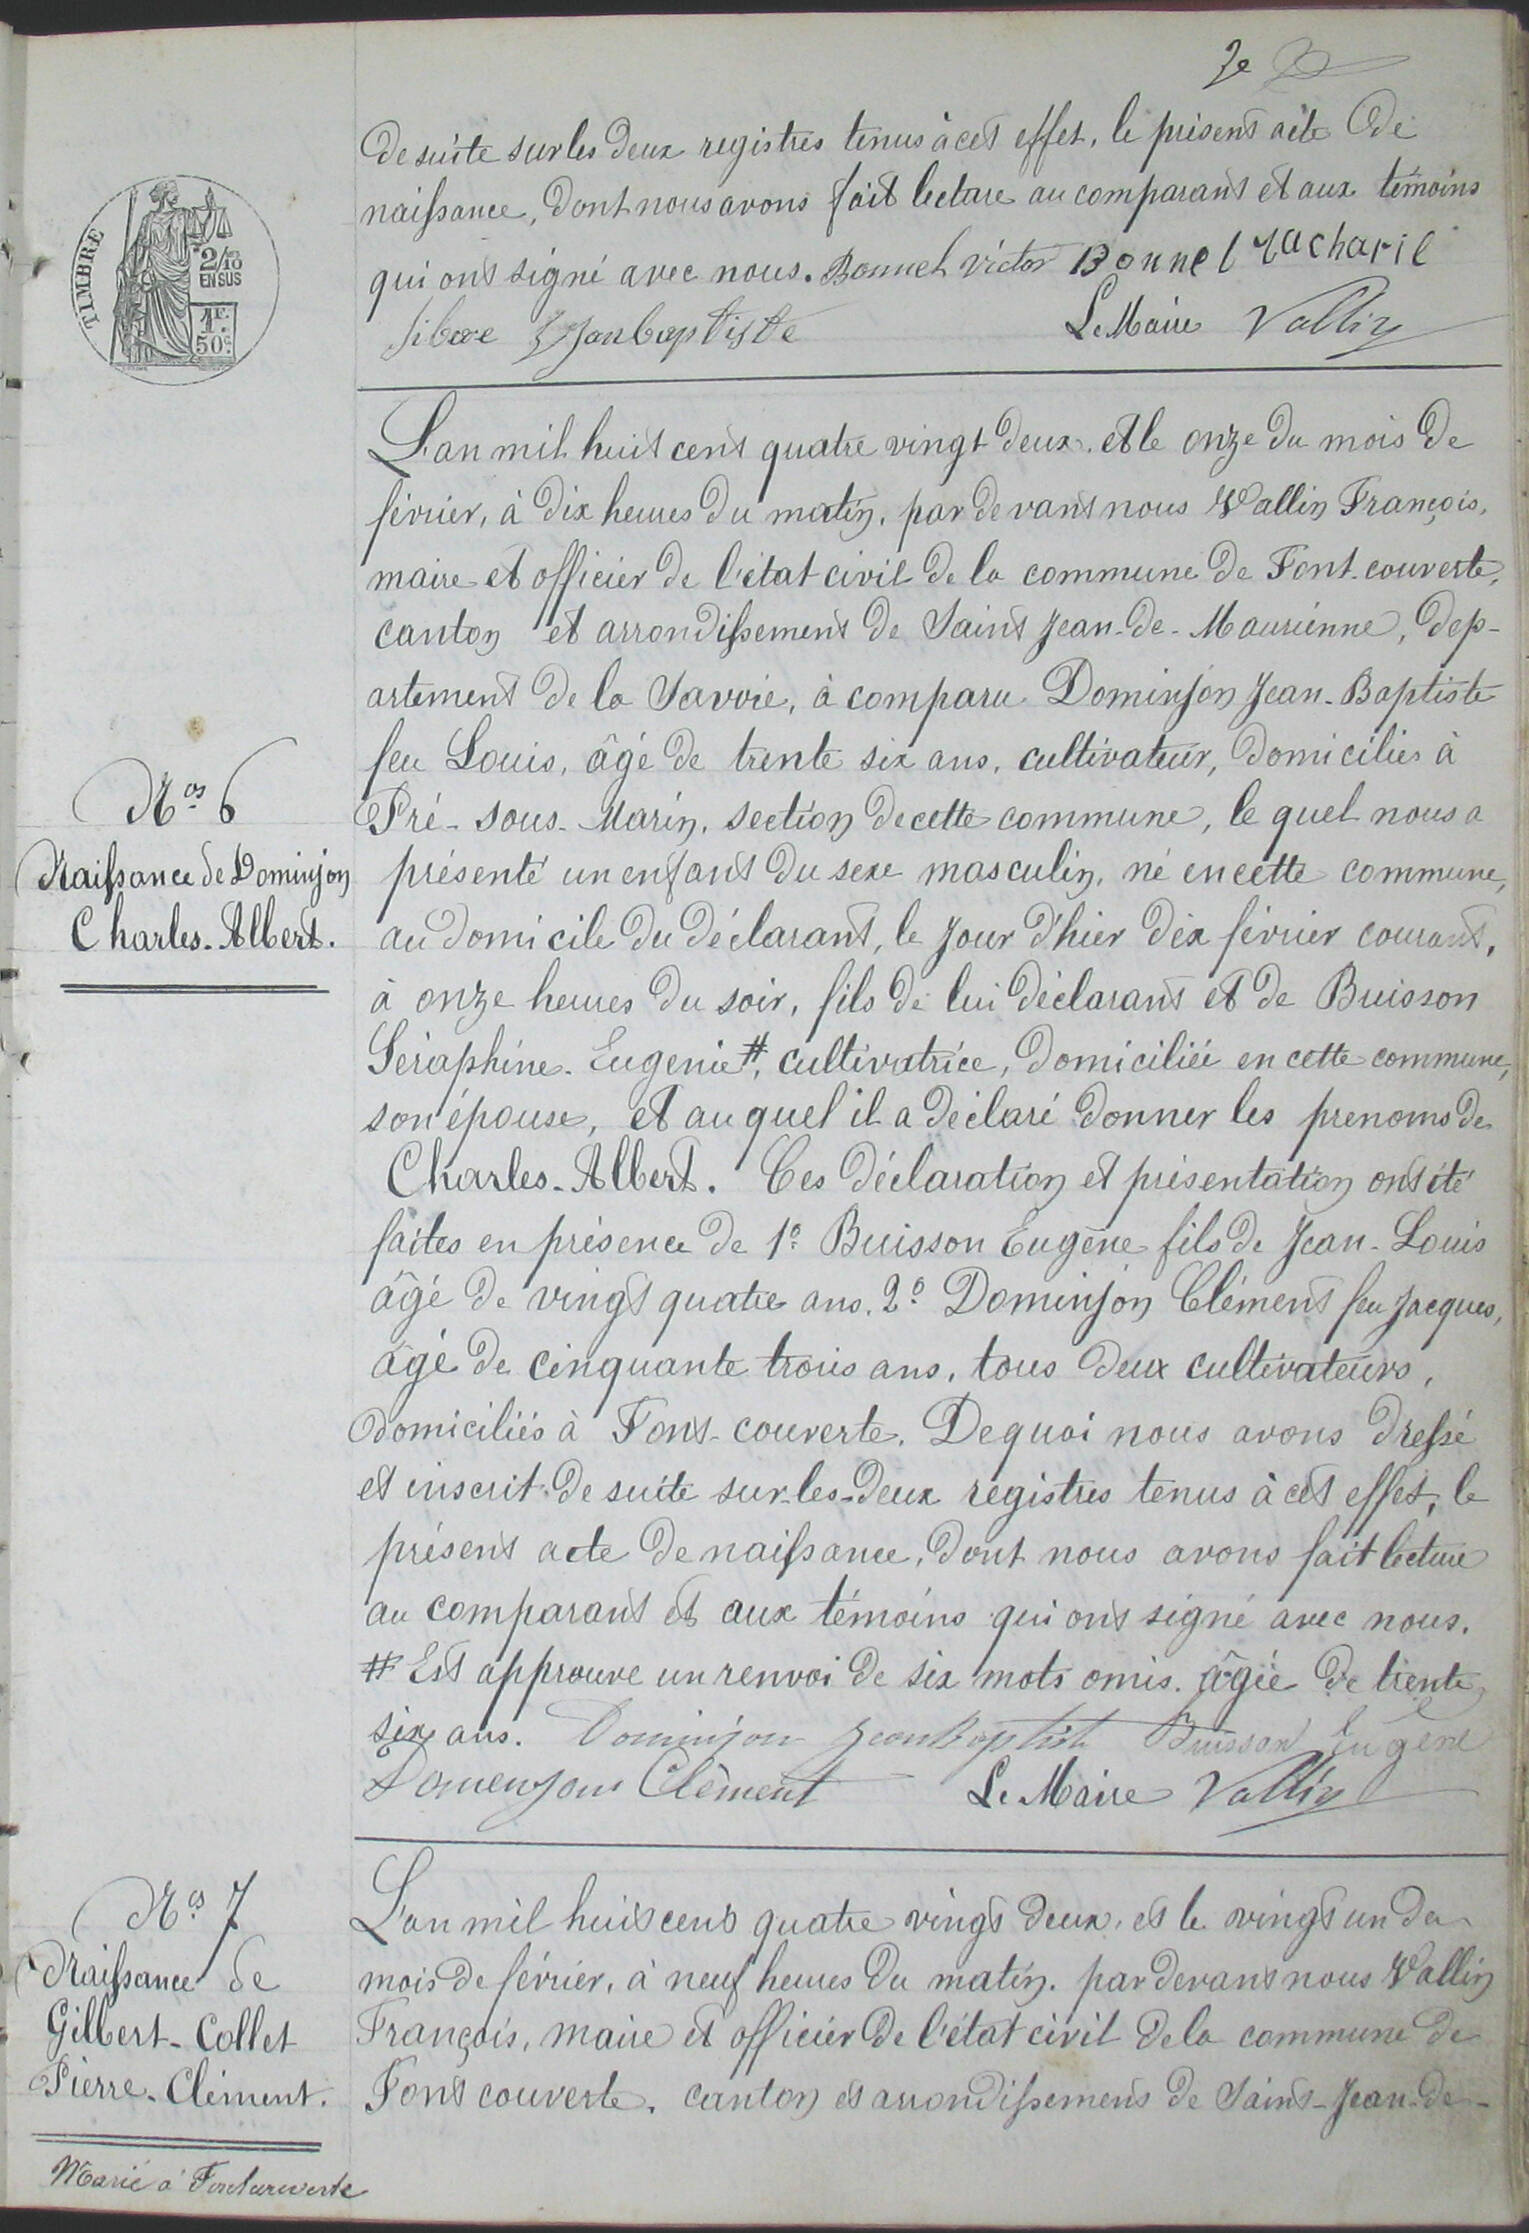 de suite sur les deux registres tenus à cet effet, le présent acte de
naissance, dont nous avons fait lecture au comparant et aux témoins
qui ont signé avec nous. Bonnel Victor Bonnel Zacharie
Jeanbaptiste Le Maire Vallin
TIMBRE
2/10
EN SUS
1F
50c
L'an mil huit cent quatre vingt deux, et le onze du mois de
février, à dix heures du matin, par devant nous Vallin François,
maire et officier de l'état civil de la commune de Font-couverte,
canton et arrondissement de Saint Jean-de-Maurienne, dép-
artement de la Savoie, à comparu Dominjon Jean-Baptiste
feu Louis, âgé de trente six ans, cultivateur, domicilies à
Pré-sous-Marin, section de cette commune, le quel nous a
N.os 6
Naissance de Dominjon
Charles-Albert.
présenté un enfant du sexe masculin, né en cette commune,
au domicile du déclarant, le jour d'hier dix février courant,
à onze heures du soir, fils de lui déclarant et de Buisson
Séraphine-Eugenie #, cultivatrice, domiciliée en cette commune,
son épouse, et auquel il a déclaré donner les prenoms de
Charles-Albert. Ces déclaration et présentation ont été
faites en présence de 1.o Buisson Eugène fils de Jean-Louis
âgé de vingt quatre ans, 2.o Dominjon Clément feu Jacques,
âgé de cinquante trois ans, tous deux cultivateurs,
domiciliés à Font-couverte. De quoi nous avons dressé
et inscrit de suite sur-les-deux registres tenus à cet effet, le
présent acte de naissance, dont nous avons fait lecture
au comparant et aux témoins qui ont signé avec nous.
# Est approuve un renvoi de six mots omis. âgée de trente
six ans. Dominjon Jean Baptiste Buisson Eugène
Domenjon Clèment Le Maire Vallin
N.os 7
Naissance de
Gilbert-Collet
Pierre-Clément.
Marié à Fontcouverte
L'an mil huit cent quatre vingt deux, et le vingt un du
mois de février, à neuf heures du matin, par devant nous Vallin
François, maire et officier de l'état civil de la commune de
Font couverte, canton et arrondissement de Saint-Jean-de-